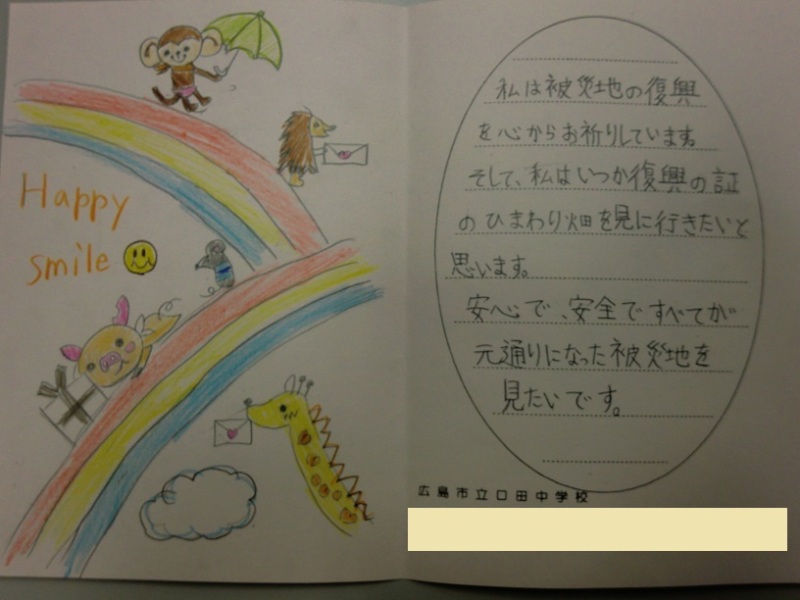 Happy
smile
私は被災地の復興
を心からお祈りしています。
そして、私はいつか復興の証
のひまわり畑を見に行きたいと
思います。
安心で、安全ですべてが
元通りになった被災地を
見たいです。
広島市立口田中学校